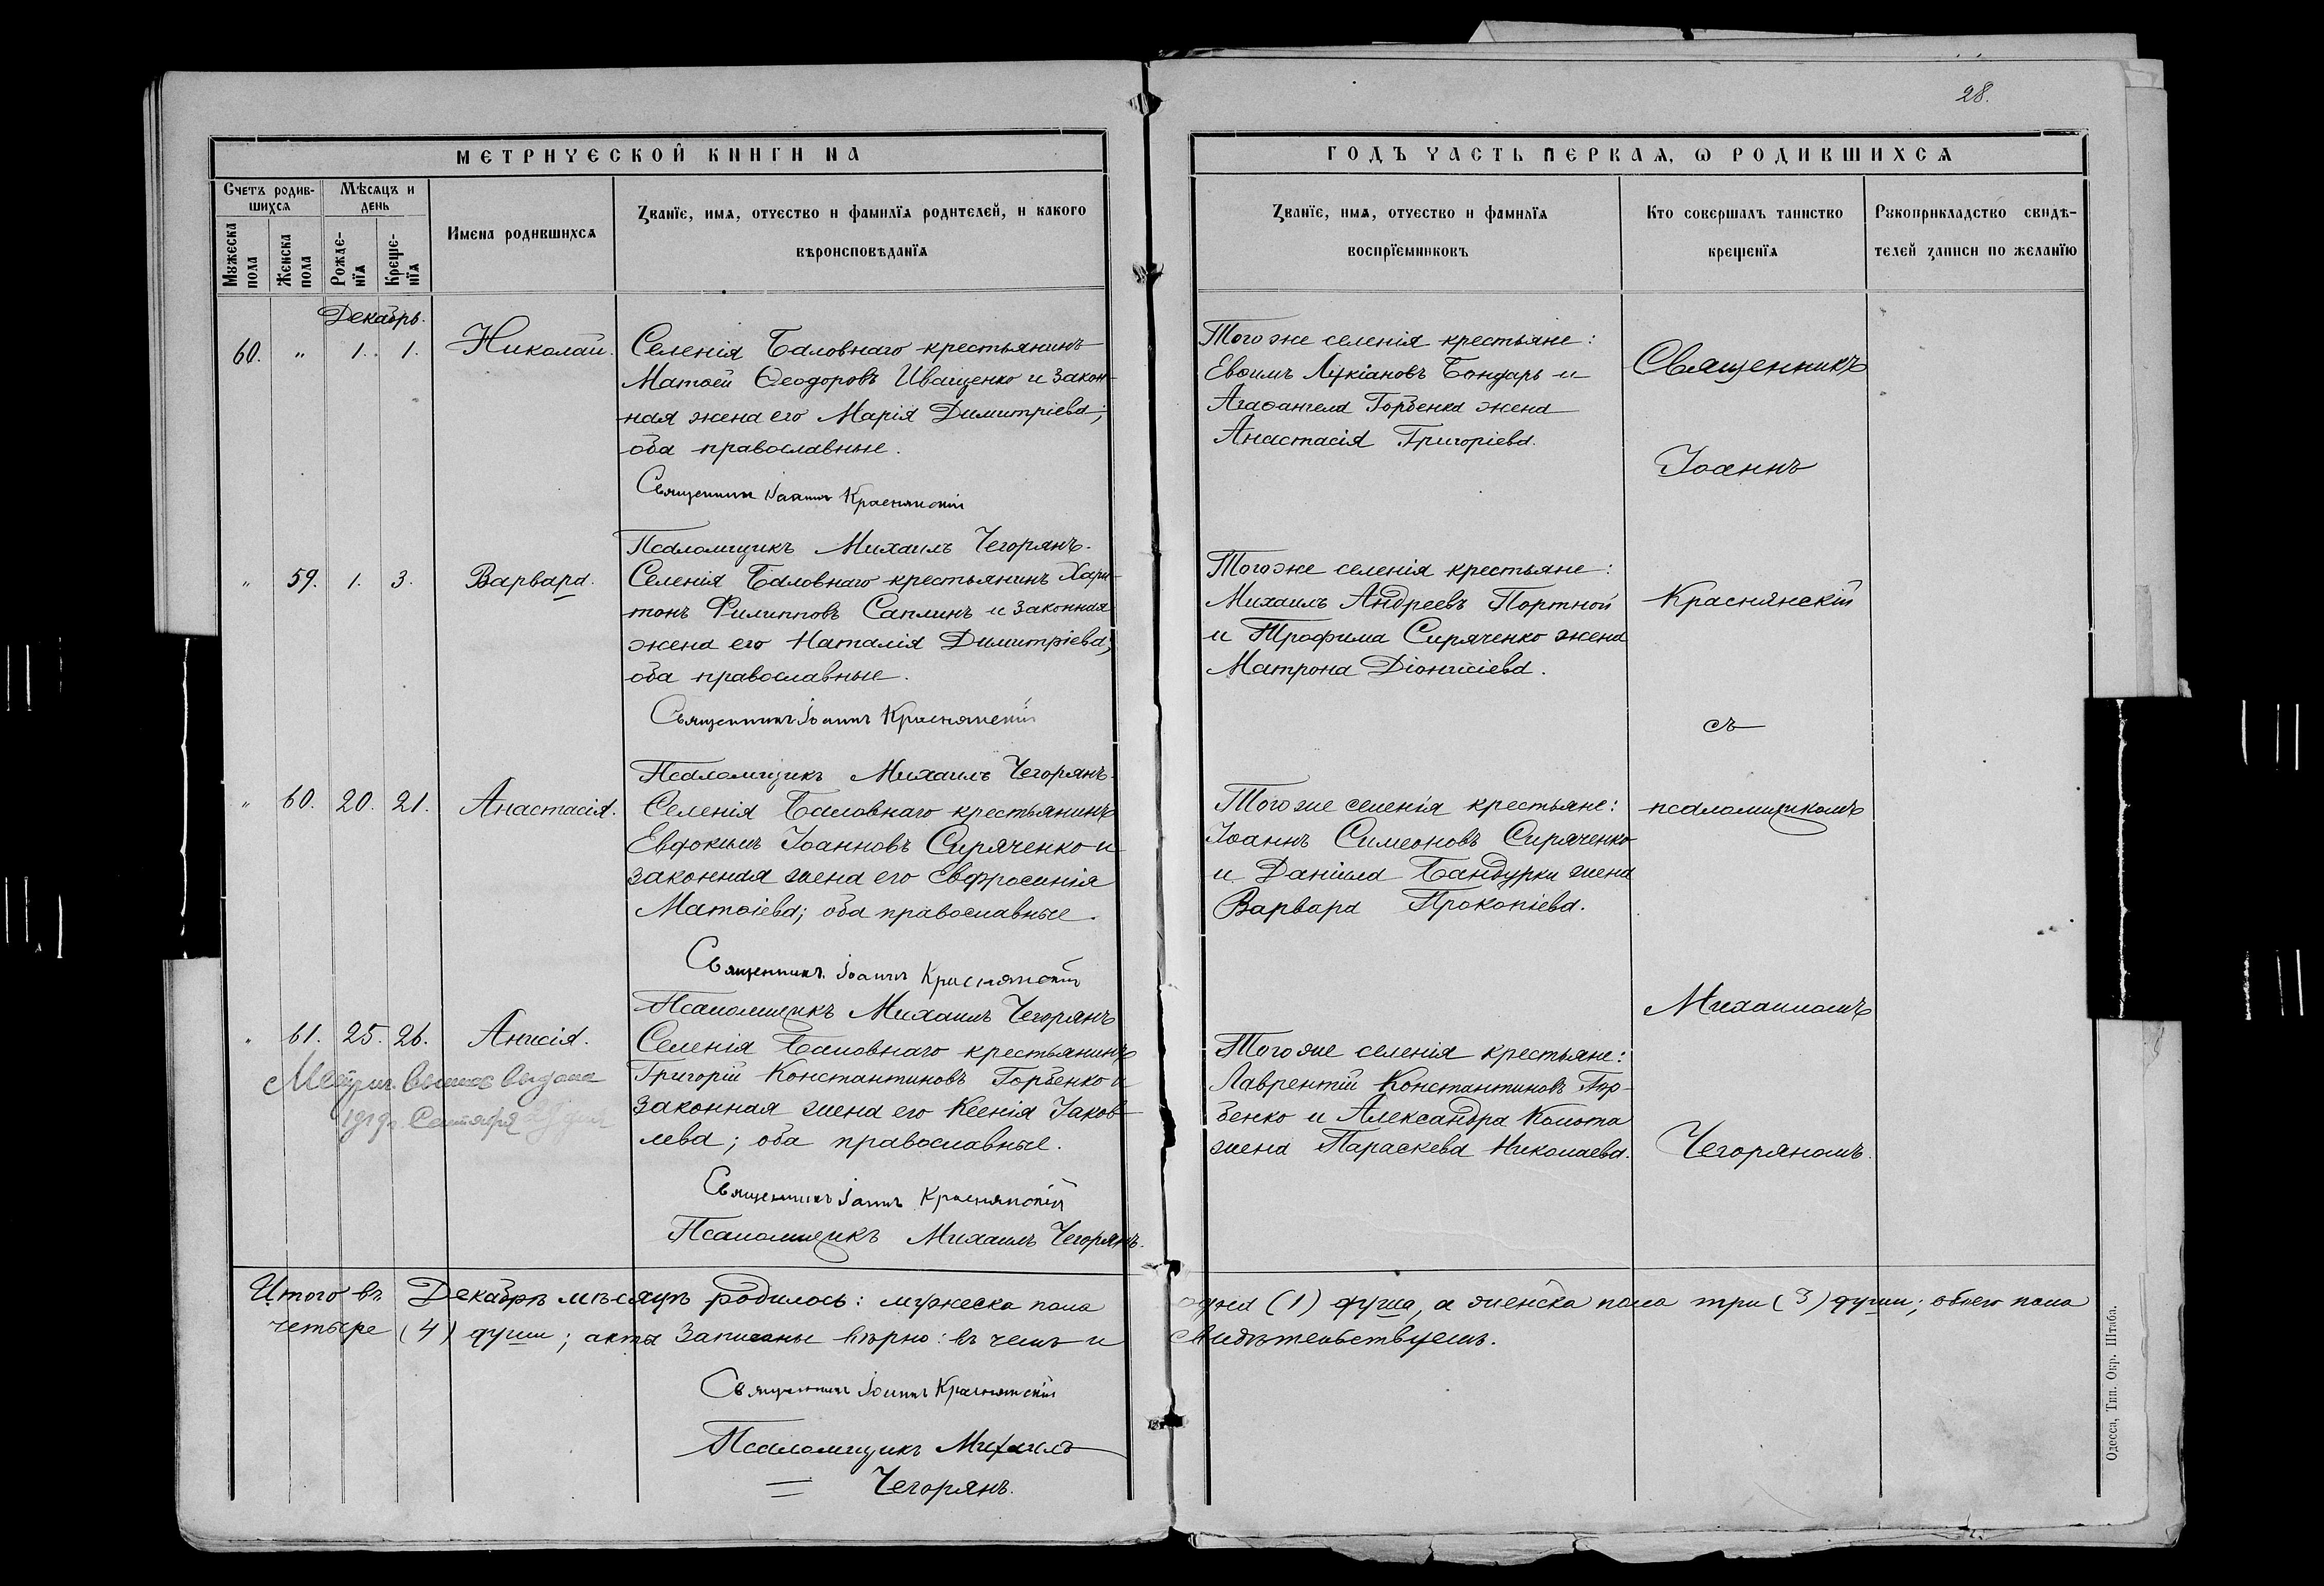 28.
МЕТРИЧЕСКОЙ КНИГИ НА
ГОДЪ ЧАСТЬ ПЕРВАЯ, Ѡ РОДИВШИХСЯ
Счетъ родив-
шихся
Мѣсяцъ и
день
Мужеска
пола
Женска
пола
Рожде-
нїя
Креще-
нїя
Имена родившихся
Званїе, имя, отчество и фамилїя родителей, и какого
вѣроисповѣданїя
Званїе, имя, отчество и фамилїя
воспрїемниковъ
Кто совершалъ таинство
крещенїя
Рукоприкладство свидѣ-
телей записи по желанїю
Декабрь.
60. " 1. 1. Николай.
Селенія Баловнаго крестьянинъ
Матѳей Ѳеодоровъ Иващенко и закон-
ная жена его Марія Димитріева;
оба православные.
Священникъ Іоаннъ Краснянскій
Псаломщикъ Михаилъ Чегорянъ.
Того же селенія крестьяне:
Евѳимъ Лукіановъ Бондарь и
Агаѳангела Горбенка жена
Анастасія Григоріева.
" 59. 1. 3. Варвара.
Селенія Баловнаго крестьянинъ Хари-
тонъ Филипповъ Саплинъ и законная
жена его Наталія Димитріева;
оба православные.
Священникъ Іоаннъ Краснянскій
Псаломщикъ Михаилъ Чегорянъ.
Того же селенія крестьяне:
Михаилъ Андреевъ Портной
и Трофима Сиряченко жена
Матрона Діонисіева.
" 60. 20. 21. Анастасія.
Селенія Баловнаго крестьянинъ
Евфокимъ Іоанновъ Сиряченко и
законная жена его Евфросинія
Матѳіева; оба православные.
Священникъ Іоаннъ Краснянскій
Псаломщикъ Михаилъ Чегорянъ
Того же селенія крестьяне:
Іоаннъ Симеоновъ Сиряченко
и Даніила Бандурки жена
Варвара Прокопіева.
" 61. 25. 26. Анисія.
Метрич. выпись выдана
1919 г. Сентября
Селенія Баловнаго крестьянинъ
Григорій Константиновъ Горбенко и
законная жена его Ксенія Іаков-
лева; оба православные.
Священникъ Іоаннъ Краснянскій
Псаломщикъ Михаилъ Чегорянъ.
Того же селенія крестьяне:
Лаврентій Константиновъ Гор-
бенко и Александра Колота
жена Параскева Николаева.
Священникъ
Іоаннъ
Краснянскій
съ
псаломщикомъ
Михаиломъ
Чегоряномъ.
Итого въ Декабрѣ мѣсяцѣ родилось: мужеска пола одна (1) душа, а женска пола три (3) души; обоего пола
четыре (4) души; акты записаны вѣрно: въ чемъ и свидѣтельствуемъ.
Священникъ Іоаннъ Краснянскій
Псаломщикъ Михаилъ
Чегорянъ.
Одесса, Тип. Окр. Штаба.